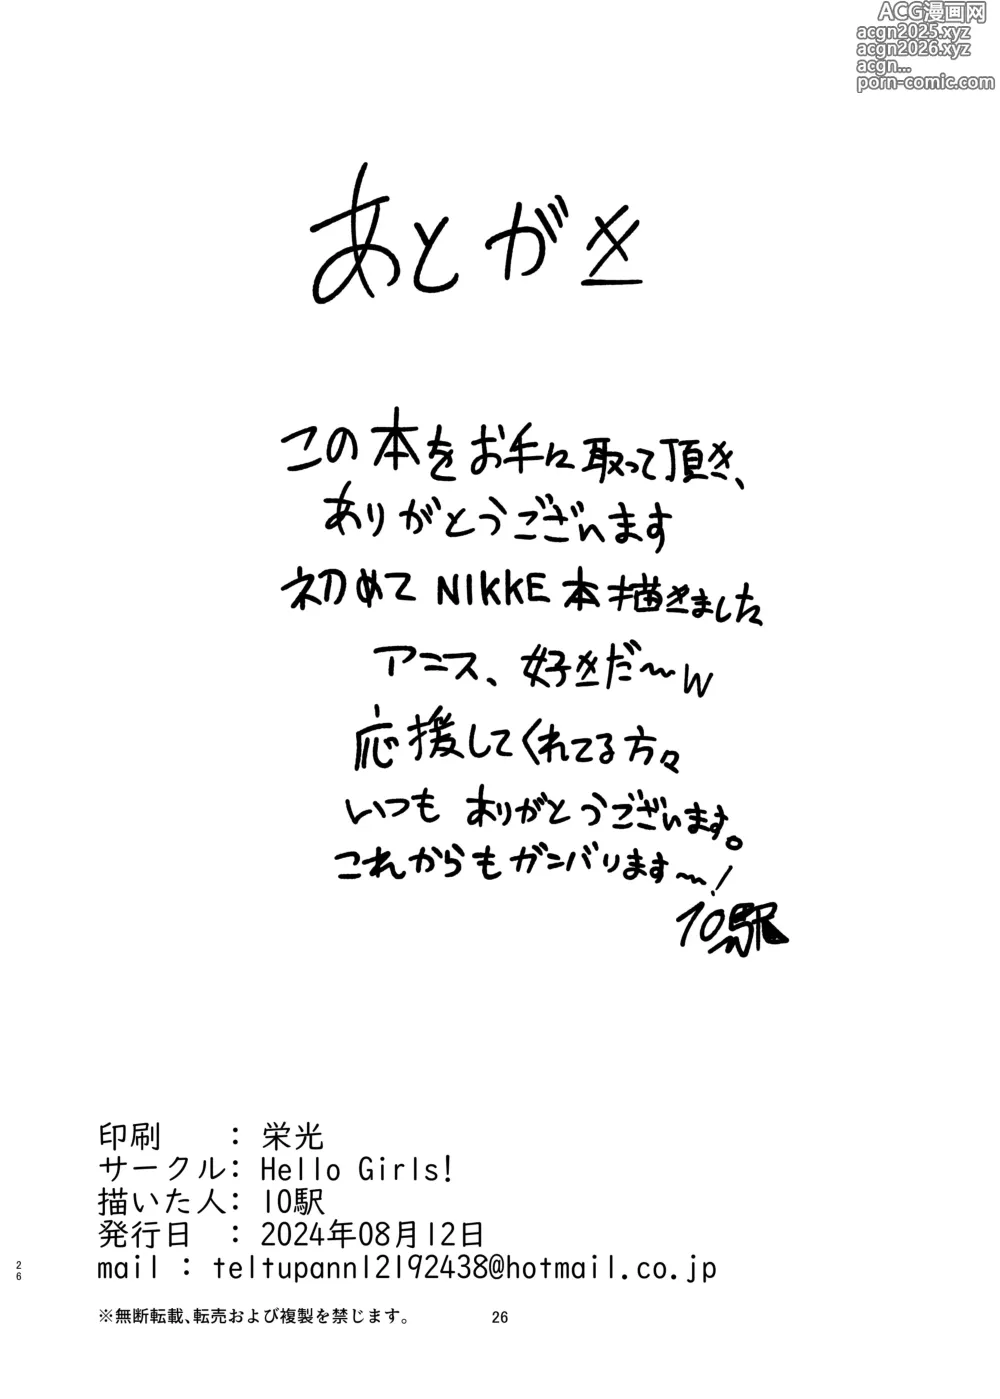 ACG漫画网
acgn2025.xyz
acgn2026.xyz
acgn...
porn-comic.com
あとがき
この本をお手に取って頂き、
ありがとうございます
初めて NIKKE 本描きました
アニス、好きだ〜w
応援してくれてる方々
いつも ありがとうございます。
これからもガンバります〜!
10駅
印刷 : 栄光
サークル: Hello Girls!
描いた人: 10駅
発行日 : 2024年08月12日
mail : teltupann12192438@hotmail.co.jp
※無断転載、転売および複製を禁じます。
26
26